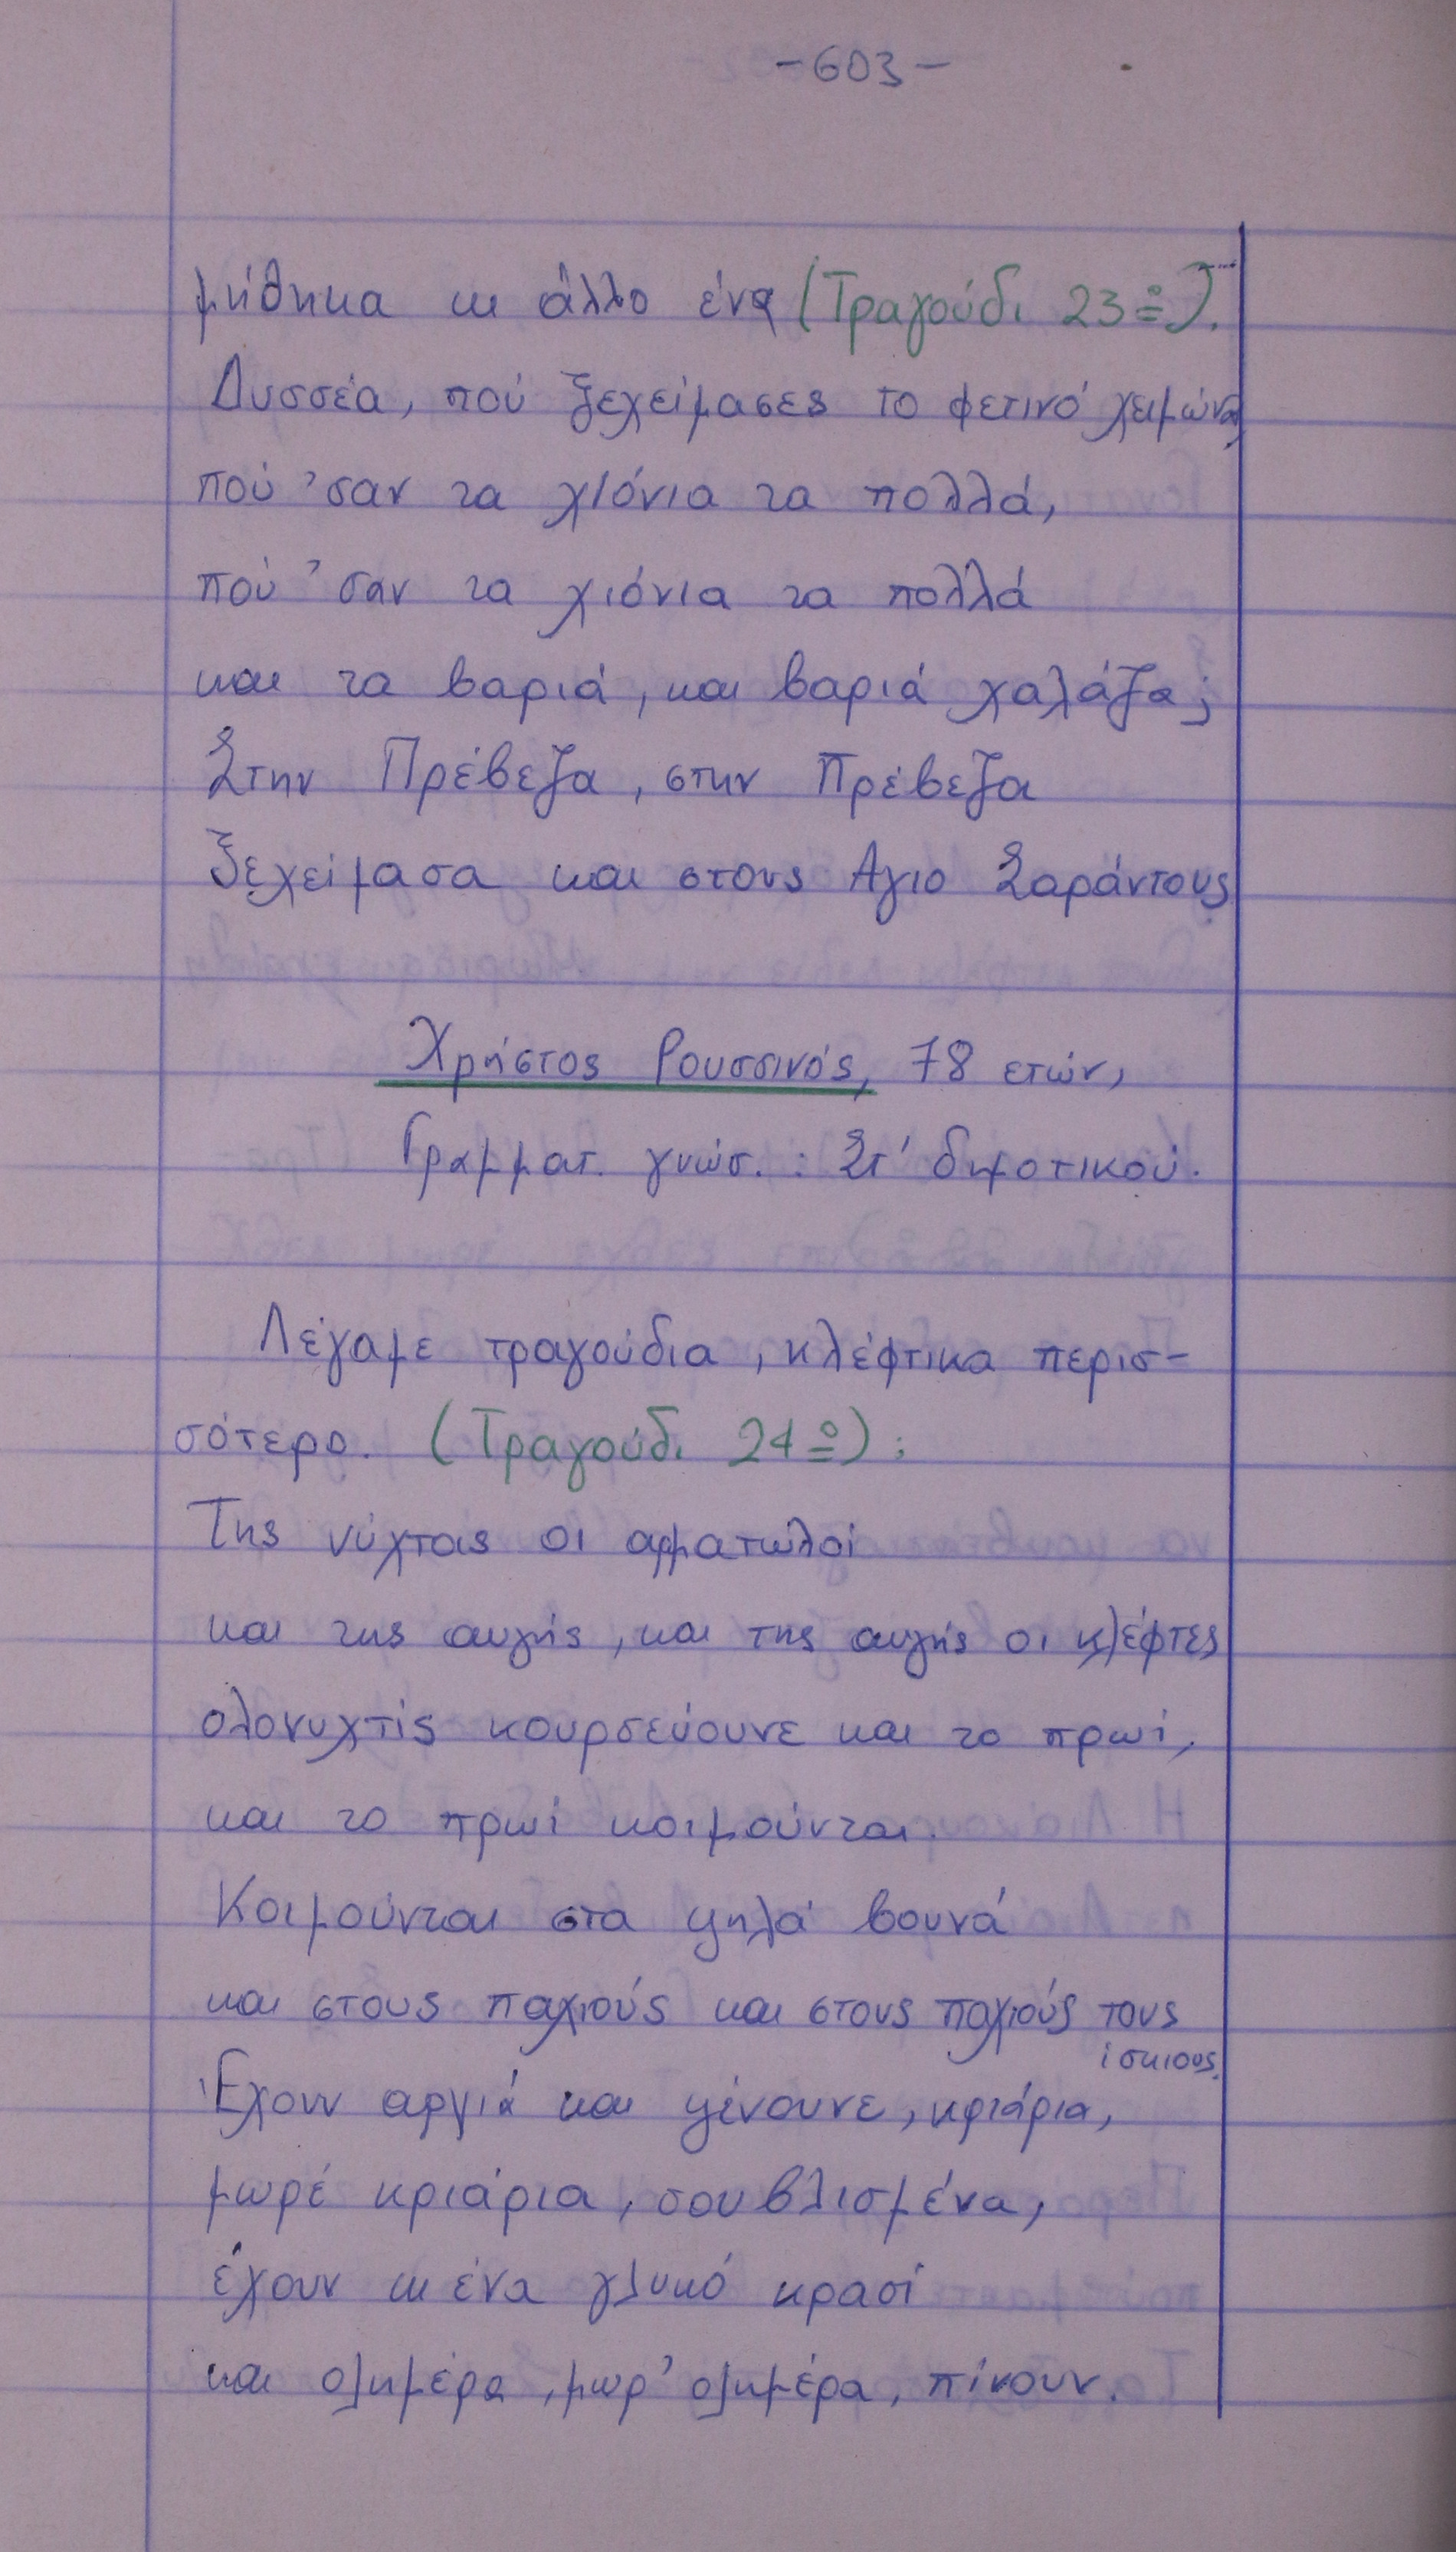 -603-
μήθηκα κι άλλο ένα (Τραγούδι 23º).
Δυσσέα, πού ξεχείμασες το φετινό χειμώνα,
πού 'σαν τα χιόνια τα πολλά,
πού 'σαν τα χιόνια τα πολλά
και τα βαριά, και βαριά χαλάζα;
Στην Πρέβεζα, στην Πρέβεζα
ξεχείμασα και στους Αγιο Σαράντους.
Χρήστος Ρουσσινός, 78 ετών,
Γραμματ. γνώσ. : Στ' δημοτικού.
Λέγαμε τραγούδια, κλέφτικα περισ-
σότερο. (Τραγούδι 24º):
Της νύχτας οι αρματωλοί
και της αυγής, και της αυγής οι κλέφτες
ολονυχτίς κουρσεύουνε και το πρωί,
και το πρωί κοιμούνται.
Κοιμούνται στα ψηλά βουνά
και στους παχιούς και στους παχιούς τους
ίσκιους.
Έχουν αρνιά και ψένουνε, κριάρια,
μωρέ κριάρια, σουβλισμένα,
έχουν κι ένα γλυκό κρασί
και οληµέρα, μωρ' οληµέρα, πίνουν.